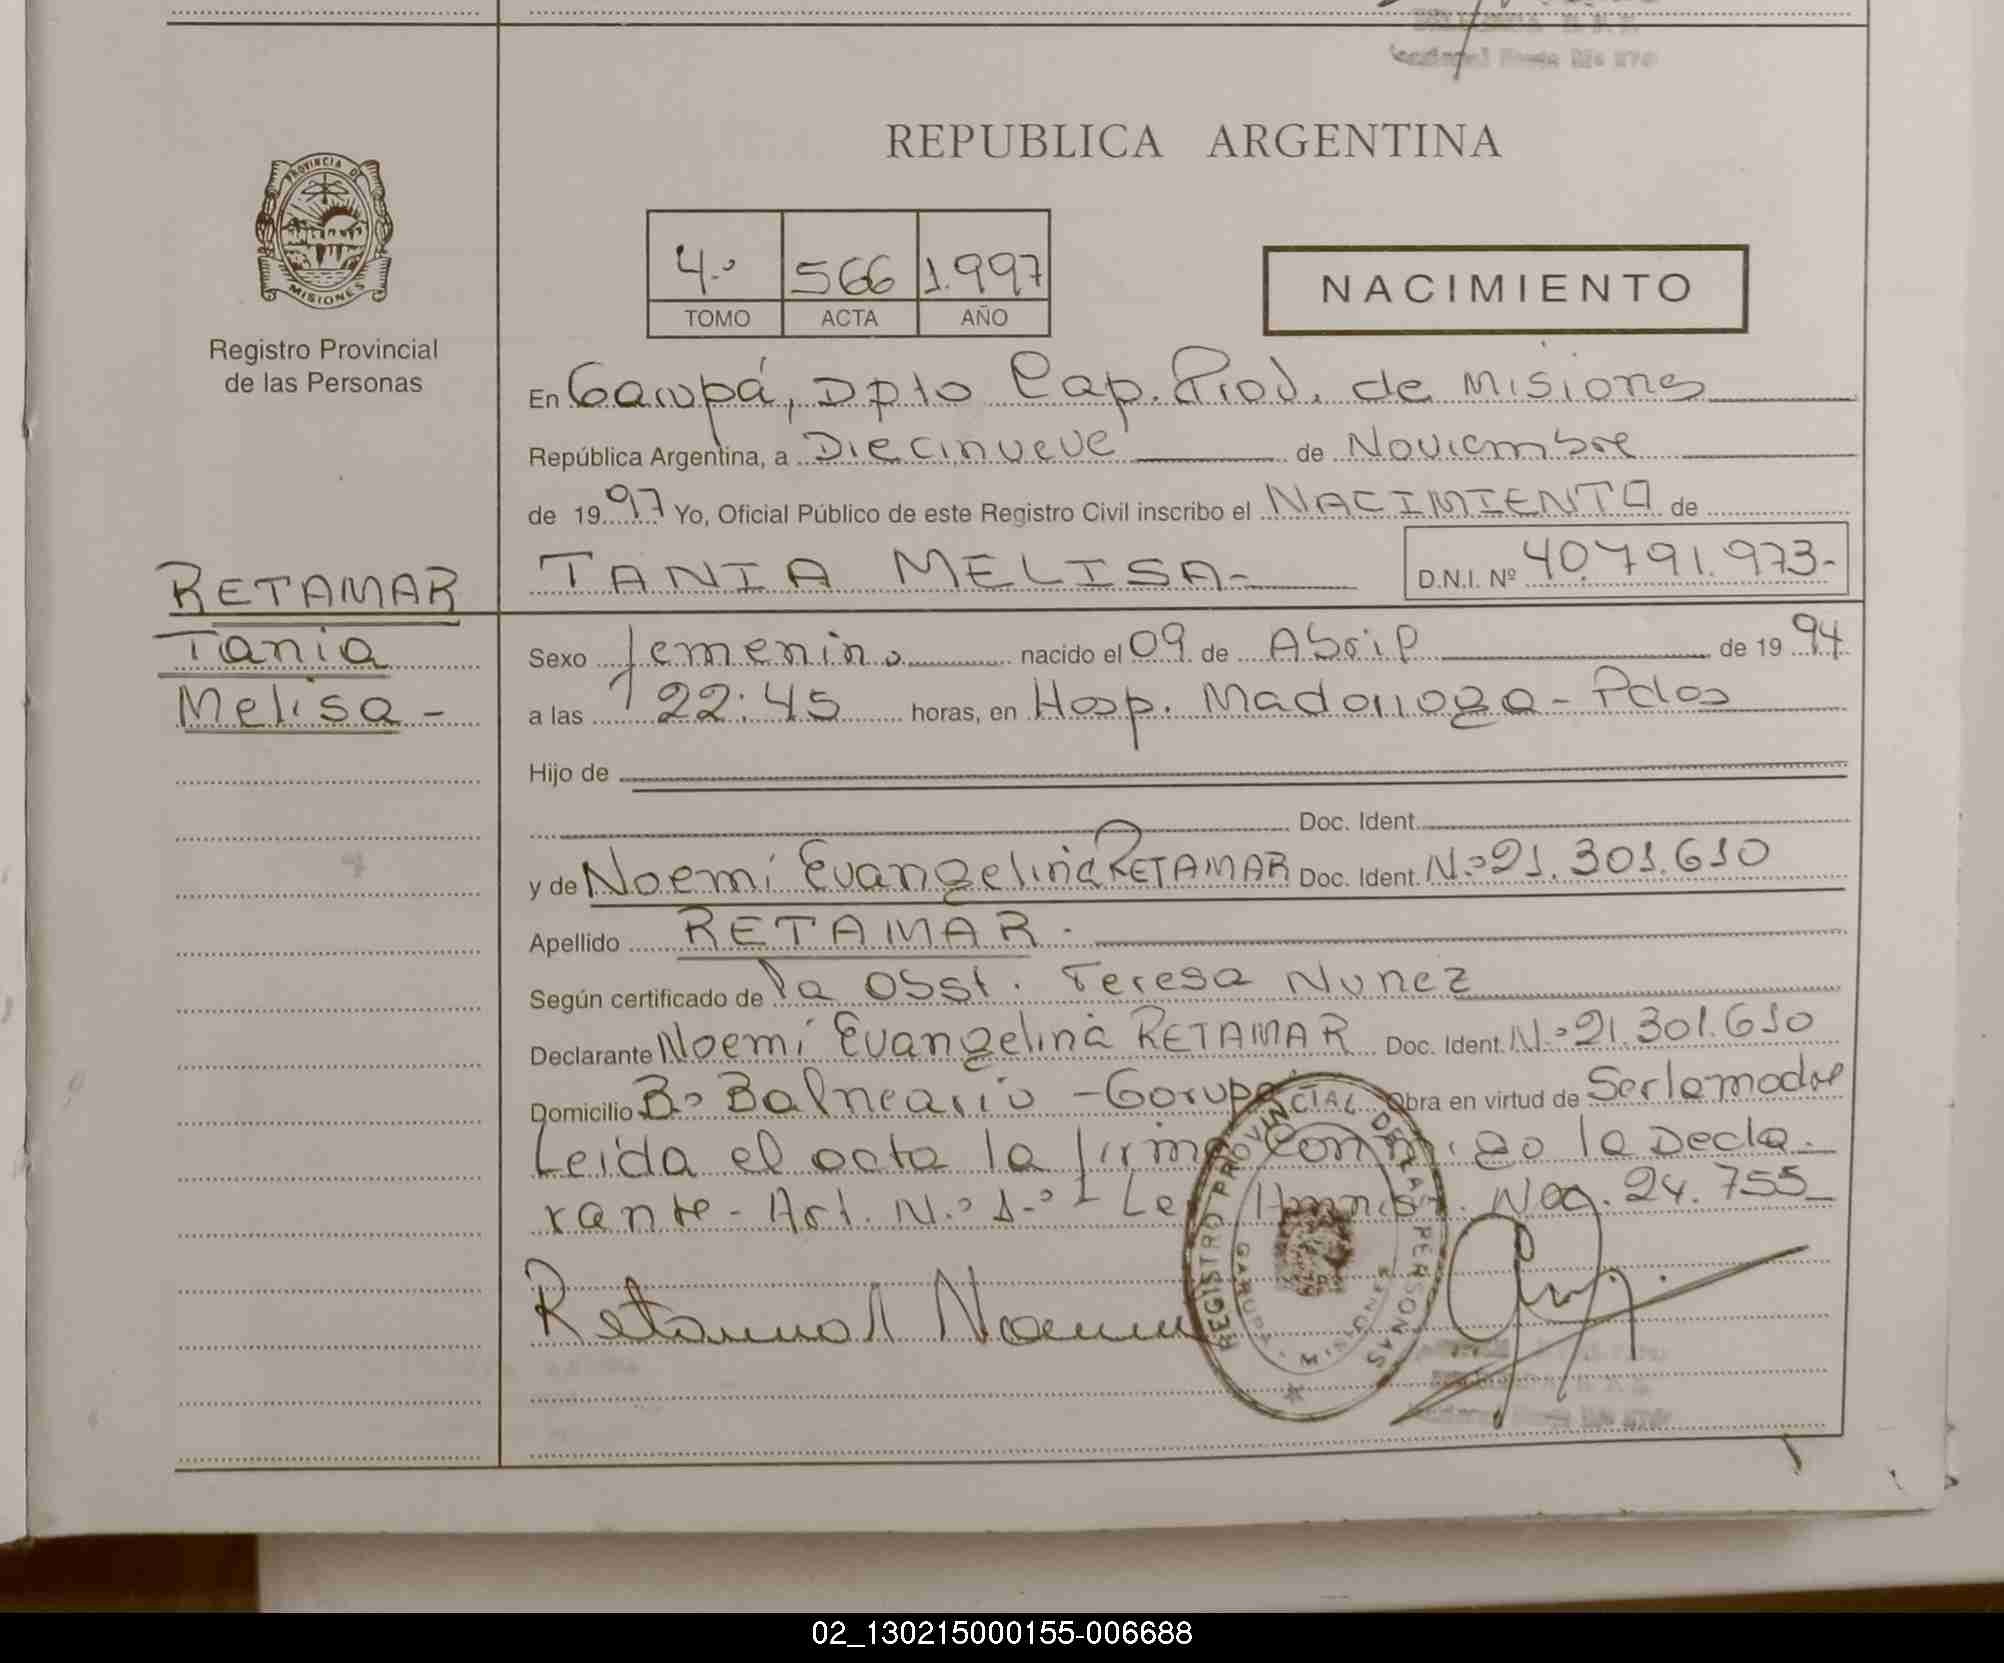 REPUBLICA ARGENTINA
PROVINCIA DE
MISIONES
Registro Provincial
de las Personas
4.º 566 1.997
TOMO ACTA AÑO
NACIMIENTO
En Garupá, Dpto Cap. Prov. de Misiones
República Argentina, a Diecinueve de Noviembre
de 1997 Yo, Oficial Público de este Registro Civil inscribo el NACIMIENTO de
TANIA MELISA- D.N.I. Nº 40.791.973-
RETAMAR
Tania
Melisa -
Sexo femenino nacido el 09 de Abril de 1994
a las 22:45 horas, en Hosp. Madariaga - Pdas
Hijo de
Doc. Ident.
y de Noemí Evangelina RETAMAR Doc. Ident. N.º 21.301.610
Apellido RETAMAR.
Según certificado de la Obst. Teresa Nunez
Declarante Noemí Evangelina RETAMAR Doc. Ident. N.º 21.301.610
Domicilio Bº Balneario - Garupa Obra en virtud de Ser la madre
Leída el acta la firma conmigo la Decla-
rante - Art. N.º 1.º Ley Nac. 24.755
Retamar Noemi
REGISTRO PROVINCIAL DE LAS PERSONAS
GARUPA - MISIONES
02_130215000155-006688